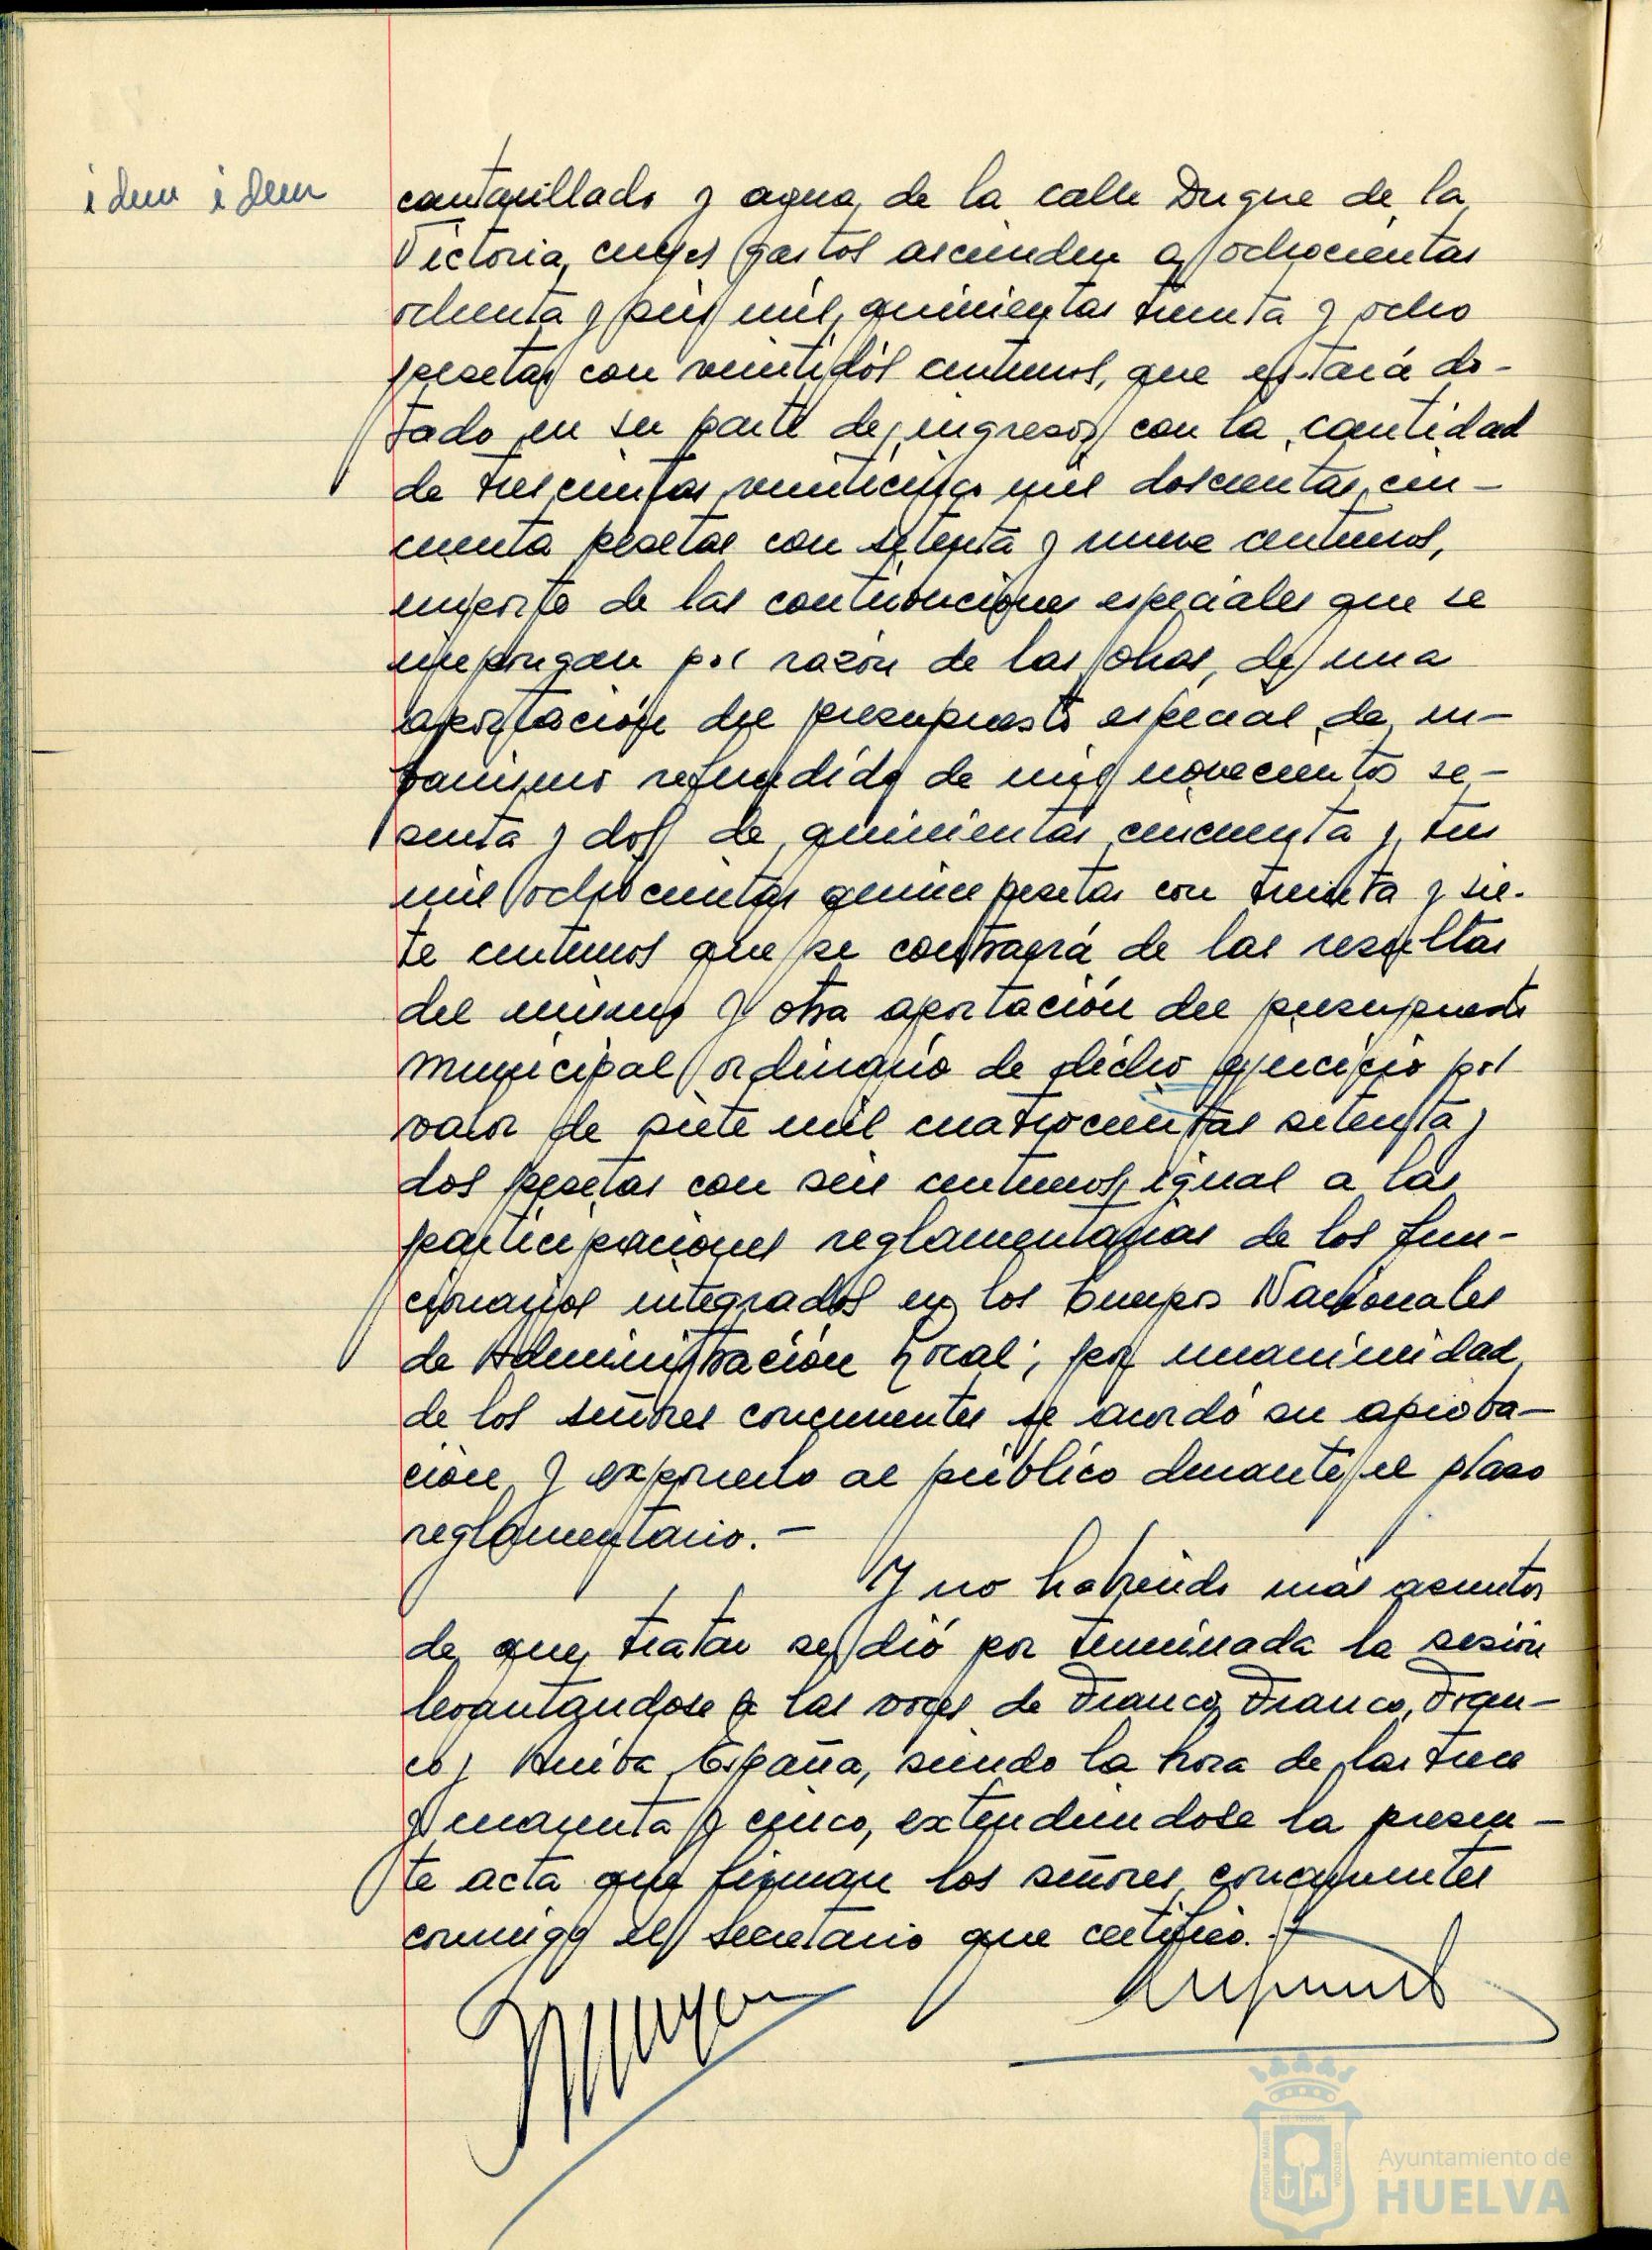 idem idem
cantarillado y agua de la calle Duque de la
Victoria, cuyos gastos ascienden a ochocientas
ochenta y seis mil quinientas treinta y ocho
pesetas con veintidós centimos, que estará do-
tado en su parte de ingresos con la cantidad
de trescientas veinticinco mil doscientas cin-
cuenta pesetas con setenta y nueve centimos,
importe de las contribuciones especiales que se
impongan por razón de las obras, de una
aportación del presupuesto especial de ur-
banismo refundido de mil novecientos se-
senta y dos de quinientas cincuenta y tres
mil ochocientas quince pesetas con treinta y sie-
te centimos que se contraerá de las resultas
del mismo y otra aportación del presupuesto
municipal ordinario de dicho ejercicio por
valor de siete mil cuatrocientas setenta y
dos pesetas con seis centimos, igual a las
participaciones reglamentarias de los fun-
cionarios integrados en los Cuerpos Nacionales
de Administración Local; por unanimidad
de los señores concurrentes se acordó su aproba-
ción y exponerlo al público durante el plazo
reglamentario.-
Y no habiendo más asuntos
de que tratar se dió por terminada la sesión
levantandose a las voces de Franco, Franco, Fran-
co y Arriba España, siendo la hora de las trece
y cuarenta y cinco, extendiendose la presen-
te acta que firman los señores concurrentes
conmigo el Secretario que certifico.-
Ayuntamiento de
HUELVA